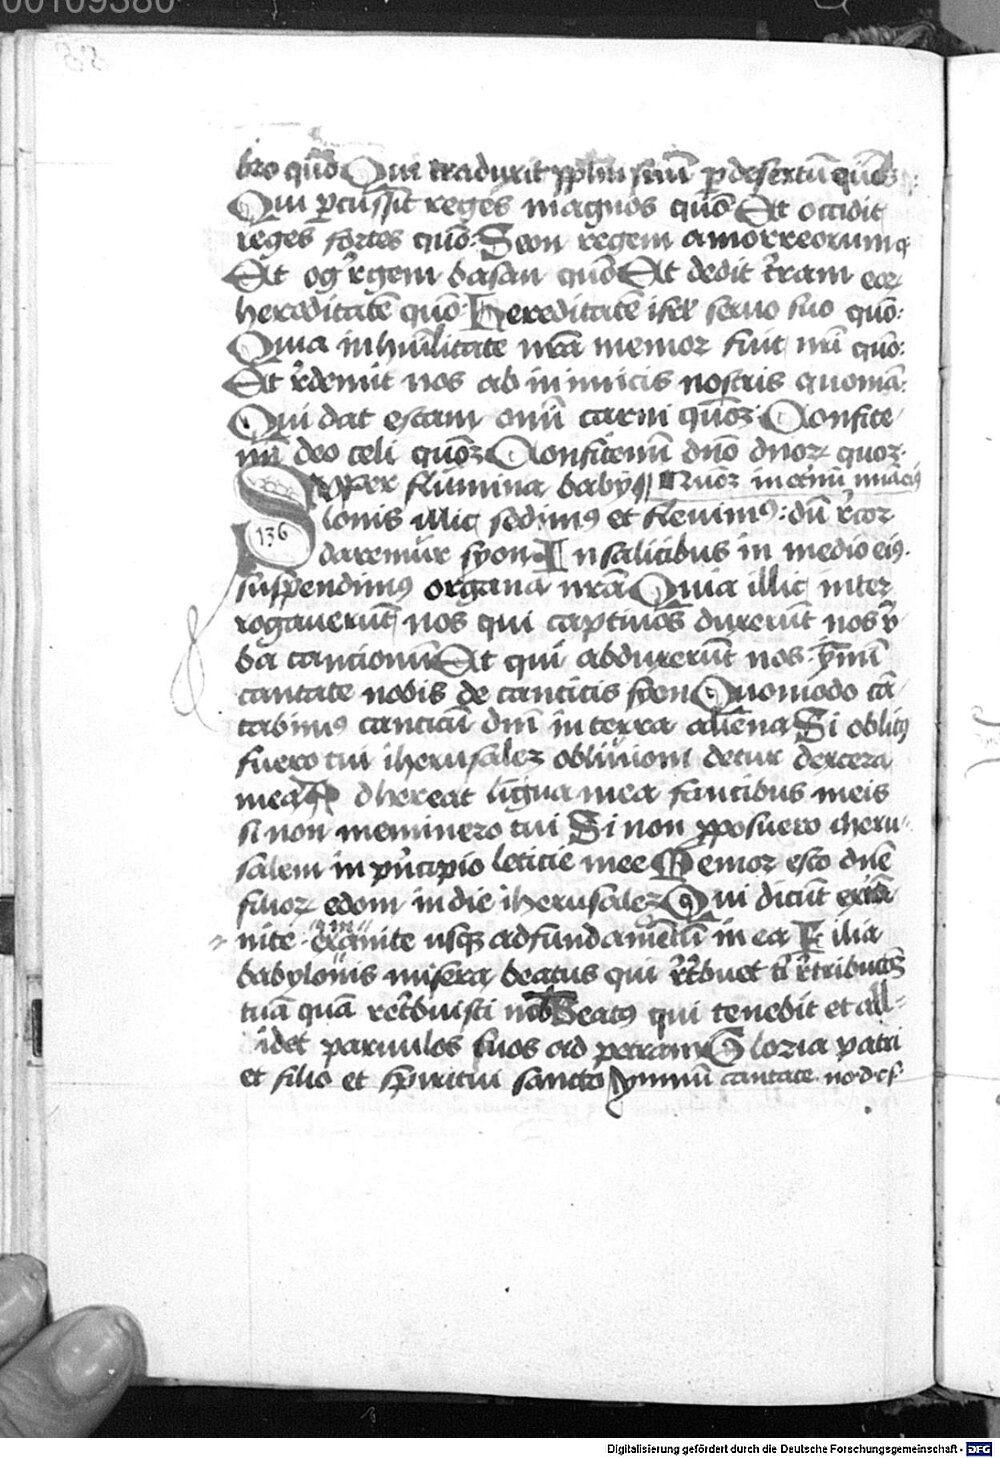 00109380
bro quō Qui traduxit pplm suū p desertū quō
Qui pcussit reges magnos quō Et occidit
reges fortes quō: Seon regem amorreorum q
Et og rgem basan quō Et dedit tram eoꝝ
hereditatē quō: Hereditatē isrl seruo suo quō:
Quia in hūilitate nrā memor fuit nri quō:
Et rdemit nos ab inimicis nostris quoniā:
Qui dat escam omī carni quōꝫ: Confite
mī deo celi quōꝫ Confitemī dnō dnoꝝ quoꝫ
Svper flumina baby
lonis illic sedimꝰ et fleuimꝰ: dū rcor
136
daremur syon In salicibus in medio eiꝰ
suspendimꝰ organa nrā Quia illic inter
rogauerūt nos qui captiuos duxerūt nos v
ba cantionū Et qui abduxerūt nos ymnū
cantate nobis de canticis syon Quomodo cā
tabimꝰ canticū dnī in terra aliena Si oblitꝰ
fuero tui iherusaleꝫ obliuioni detur dextera
mea Adhereat lingua mea faucibus meis
si non meminero tui Si non pposuero iheru
salem in pncipio leticie mee Memor esto dnē
filioꝝ edom in die iherusaleꝫ Qui dicūt exina
nite exinanite usqꝫ ad fundamētū in ea Filia
babylonis misera beatus qui rtbuet ti rtributōꝫ
tuā quā retbuisti nob Beatꝰ qui tenebit et all
idet paruulos suos ad petram Gloria patri
et filio et spiritui sancto ymnū cantate no d cs
Digitalisierung gefördert durch die Deutsche Forschungsgemeinschaft - DFG